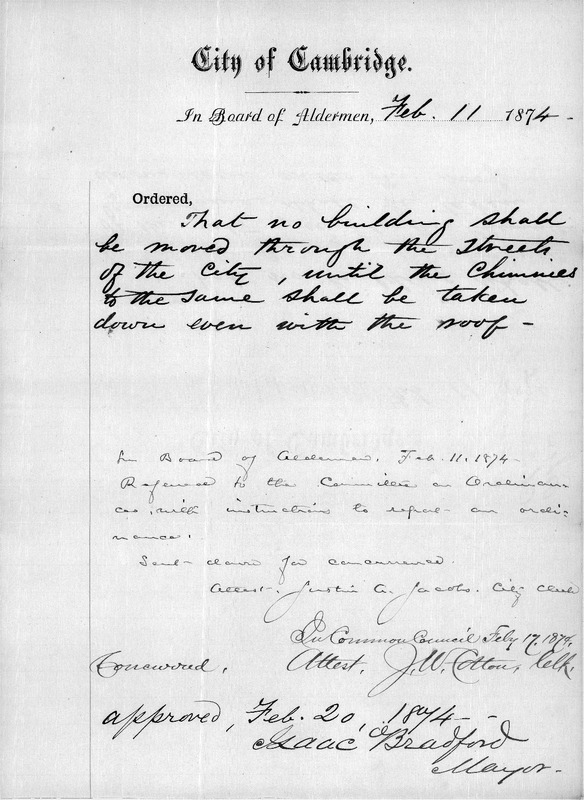 City of Cambridge.
In Board of Aldermen, Feb. 11 1874-
Ordered,
That no building shall
be moved through the Streets
of the City, until the Chimnies
to the same shall be taken
down even with the roof-
In Board of Aldermen. Feb. 11. 1874-
Referred to the Committee on Ordinan-
ces, with instructions to report an ordi-
nance.
Sent down for concurrence.
Attest- Justin A. Jacobs. City Clerk
In Common Council Feby 17, 1874.
Concurred. Attest, J. W. Cotton, Clk.
approved, Feb. 20, 1874-
Isaac Bradford
Mayor-